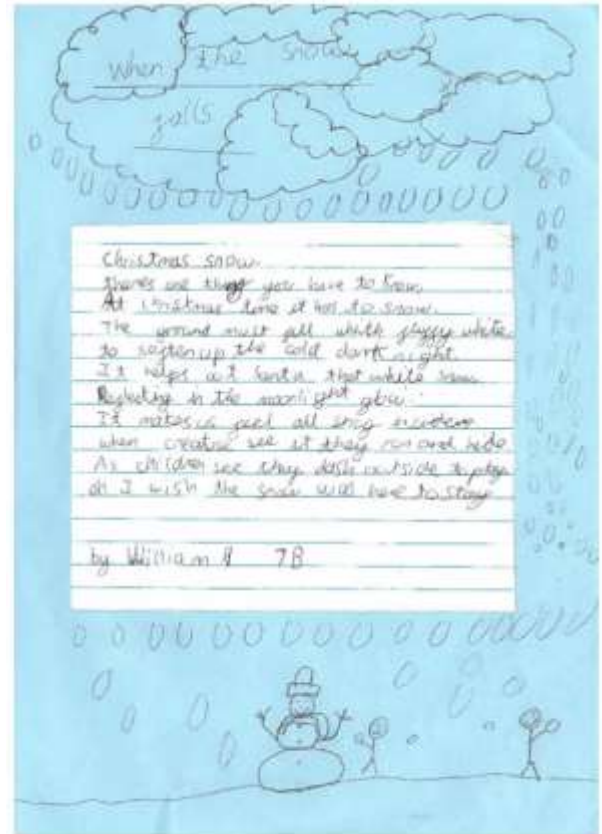 when the snow
falls
Christmas snow
theres one thing you have to know
At christmas time it has to snow.
The ground must fall white fluffy white
to soften up the cold dark night
It helps out santa that white snow
Reflecting in the moonlight glow.
It makes us feel all snug
when see it they run and hide
As children see they dash outside to play
oh I wish the snow was here to stay
by William 7B